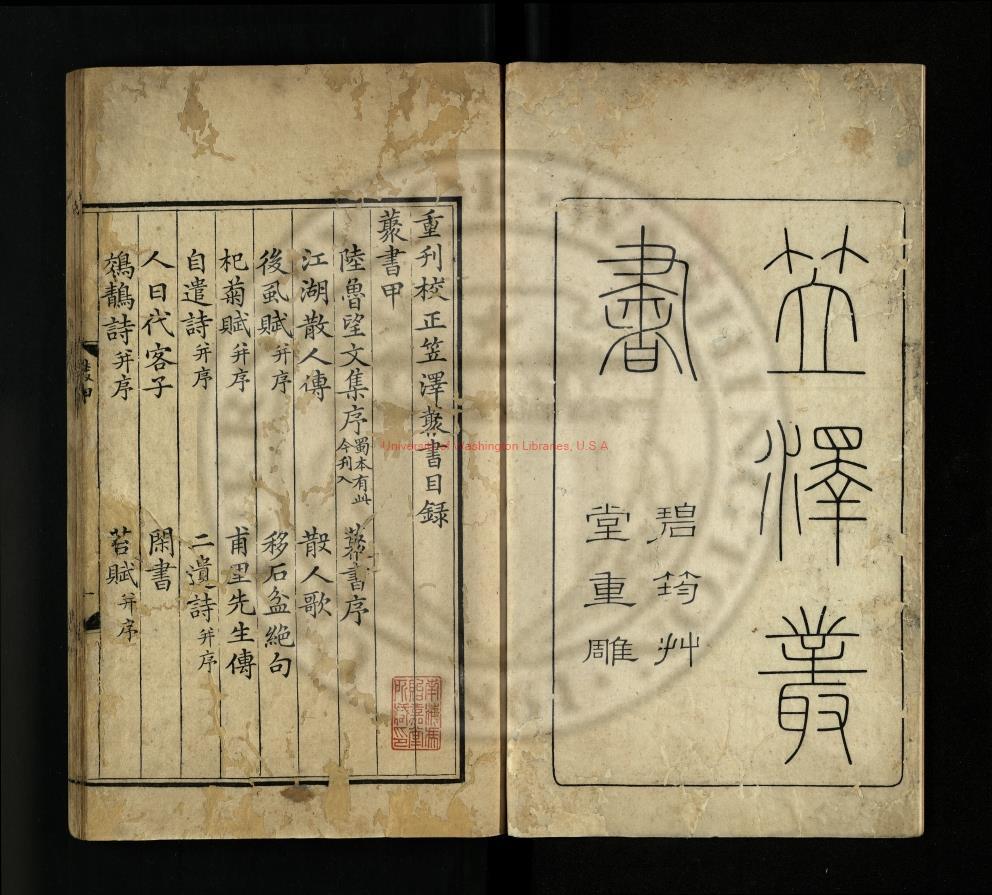 笠澤叢
書
碧筠艸
堂重雕
重刊校正笠澤藂書目録
藂書甲
陸魯望文集序 蜀本有此今刊入 藂書序
江湖散人傳 散人歌
後虱賦并序 移石盆絶句
杞菊賦并序 甫里先生傳
自遣詩并序 二遺詩并序
人日代客子 閑書
鵁鶄詩并序 苔賦并序
University of Washington Libraries, U.S.A